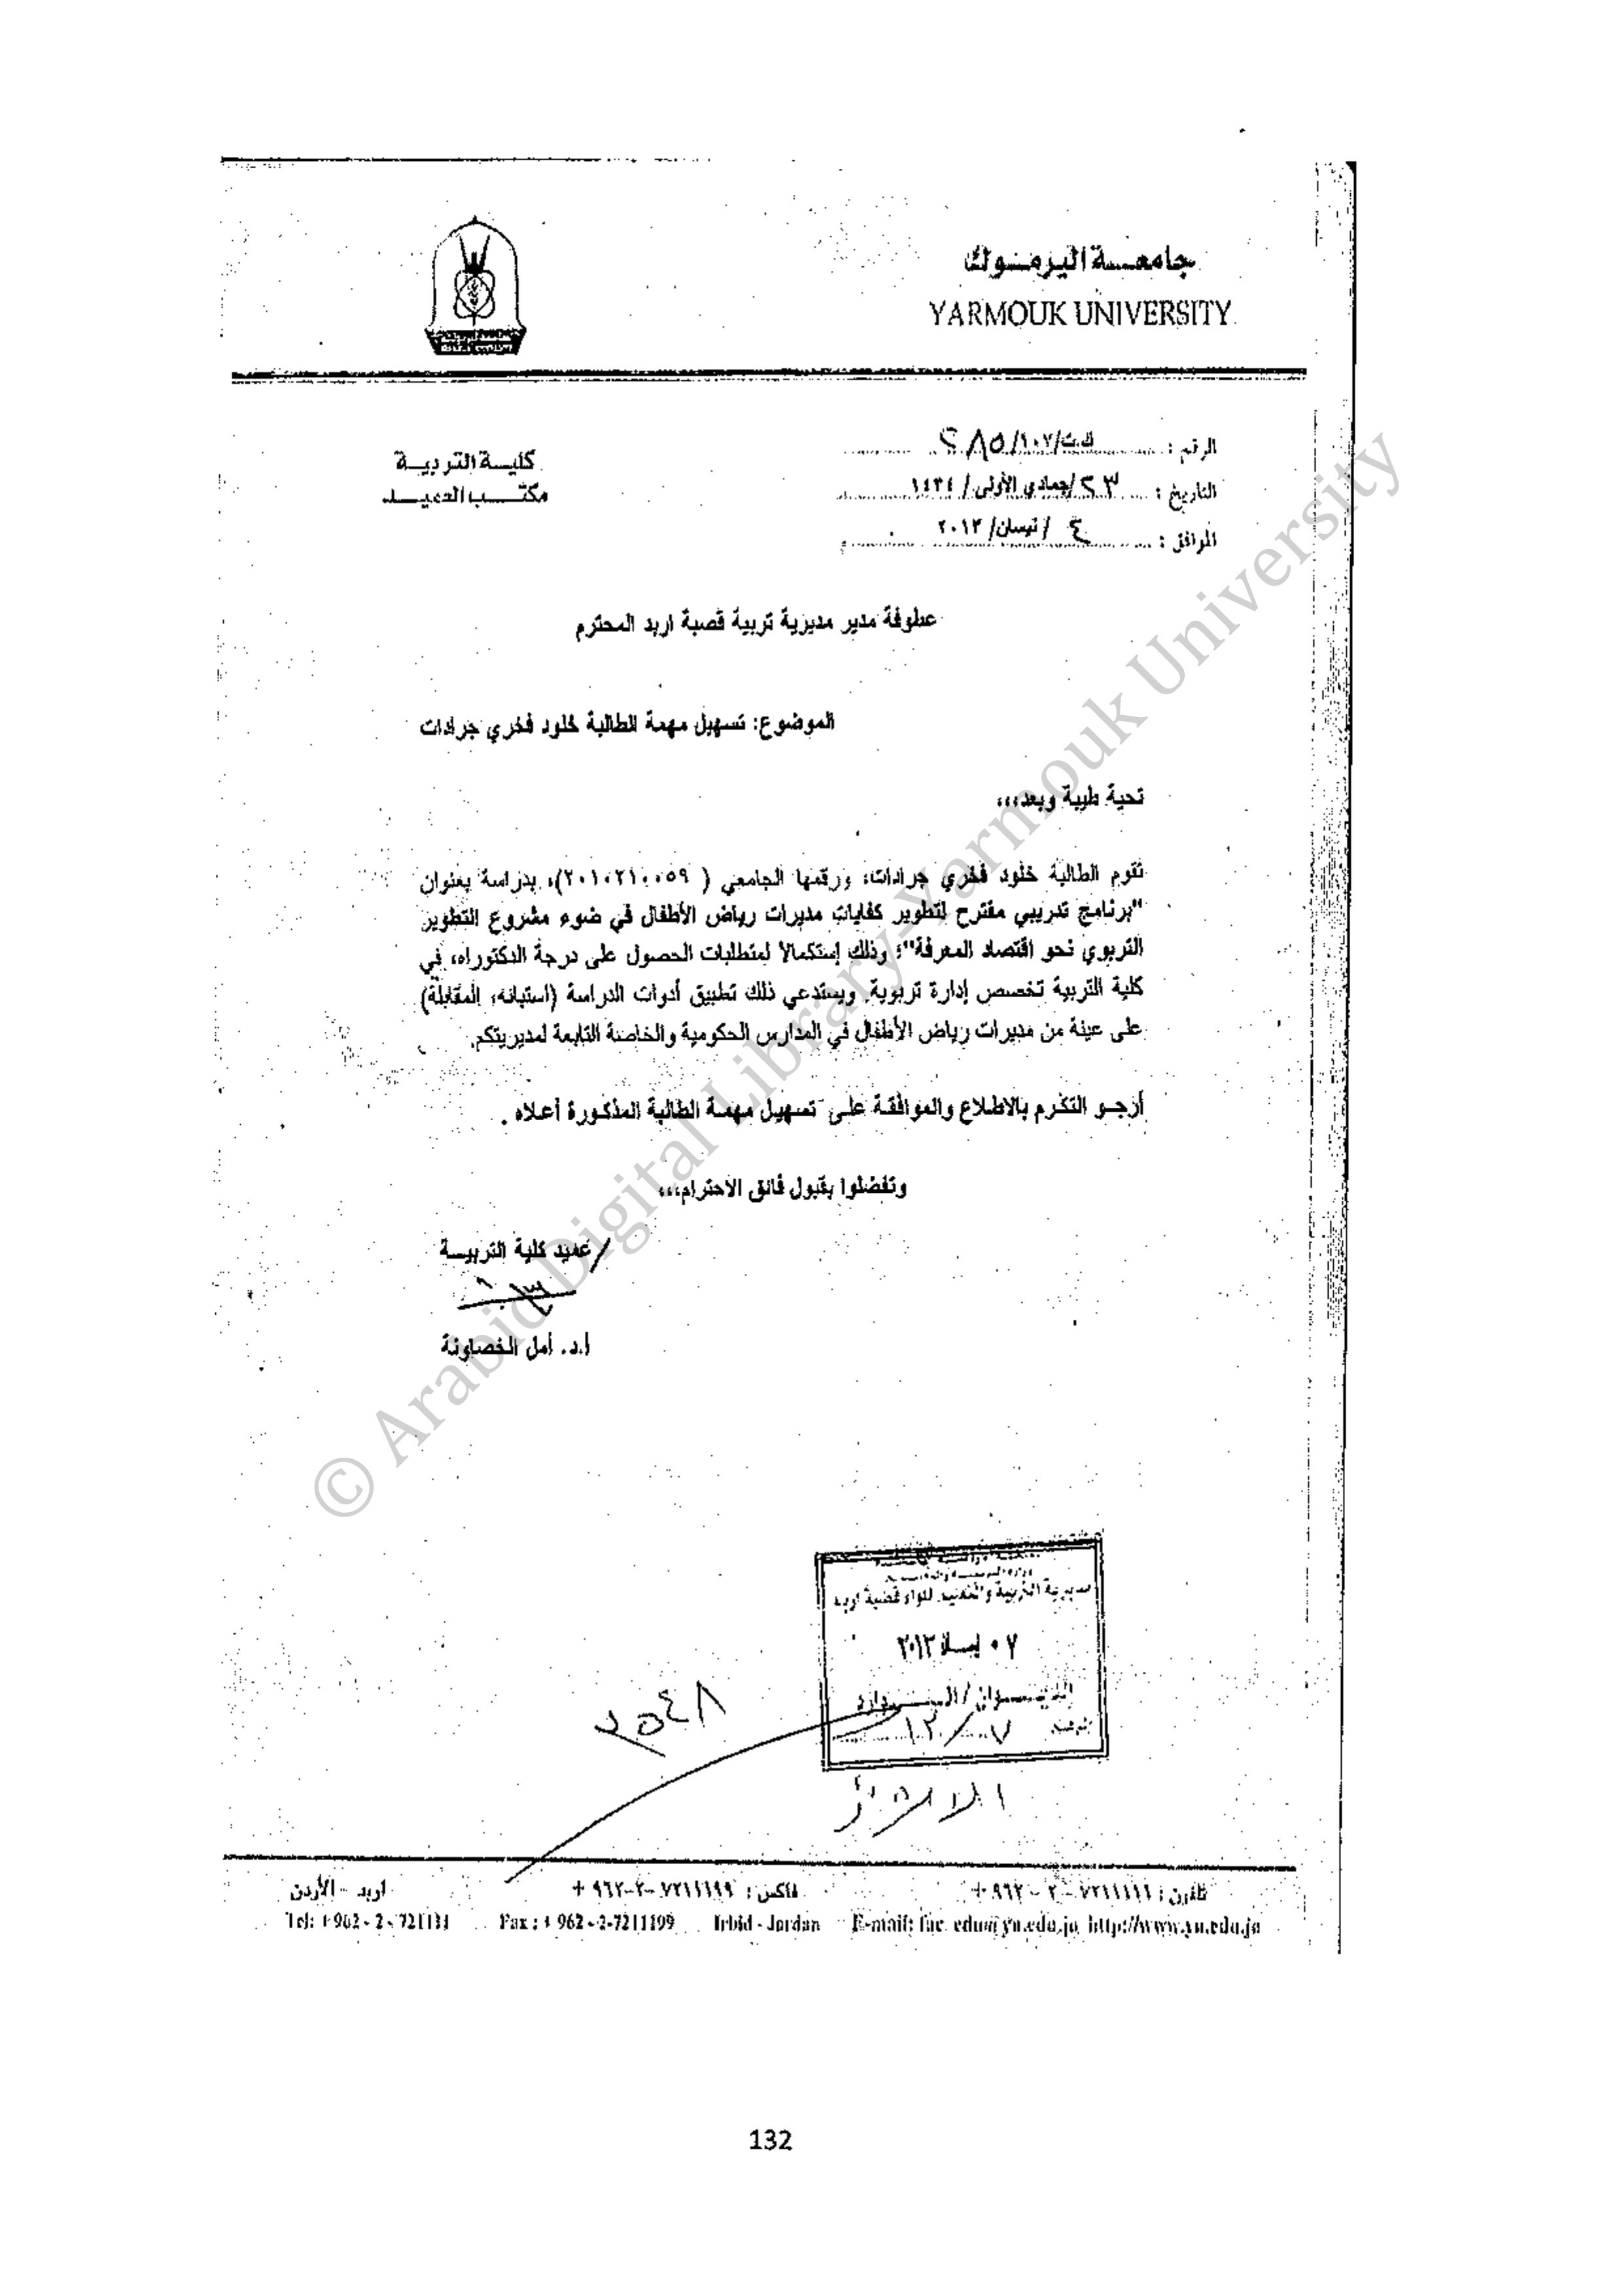 جامعة اليرموك
YARMOUK UNIVERSITY
كلية التربية
مكتب العميد
الرقم : ك ت/١٠٧/٢٨٥
التاريخ : ٢٣/جمادى الأولى/ ١٤٣٤
الموافق : ٤ /نيسان/ ٢٠١٣ م
عطوفة مدير مديرية تربية قصبة اربد المحترم
الموضوع: تسهيل مهمة الطالبة خلود فخري جرادات
تحية طيبة وبعد،،،
تقوم الطالبة خلود فخري جرادات، ورقمها الجامعي ( ٢٠١٠٢١٠٠٥٩)، بدراسة بعنوان
"برنامج تدريبي مقترح لتطوير كفايات مديرات رياض الأطفال في ضوء مشروع التطوير
التربوي نحو اقتصاد المعرفة"؛ وذلك إستكمالا لمتطلبات الحصول على درجة الدكتوراه، في
كلية التربية تخصص إدارة تربوية. ويستدعي ذلك تطبيق أدوات الدراسة (استبانه، المقابلة)
على عينة من مديرات رياض الأطفال في المدارس الحكومية والخاصة التابعة لمديريتكم.
أرجو التكرم بالاطلاع والموافقة على تسهيل مهمة الطالبة المذكورة أعلاه .
وتفضلوا بقبول فائق الاحترام،،،
/ عميد كلية التربية
أ.د. أمل الخصاونة
مديرية التربية والتعليم للواء قصبة اربد
٠٧ ٢٠١٣
الديوان/الوارد
١٢/٠٧
٢٥٤٨
تلفون : ٧٢١١١١١ - ٢ - ٩٦٢ +
فاكس : ٧٢١١١٩٩ -٢-٩٦٢ +
اربد - الأردن
Tel: + 962 - 2 - 721131 Fax : + 962 - 2-7211199 Irbid - Jordan E-mail: fac. edu@yu.edu.jo, http://www.yu.edu.jo
© Arabic Digital Library-Yarmouk University
132